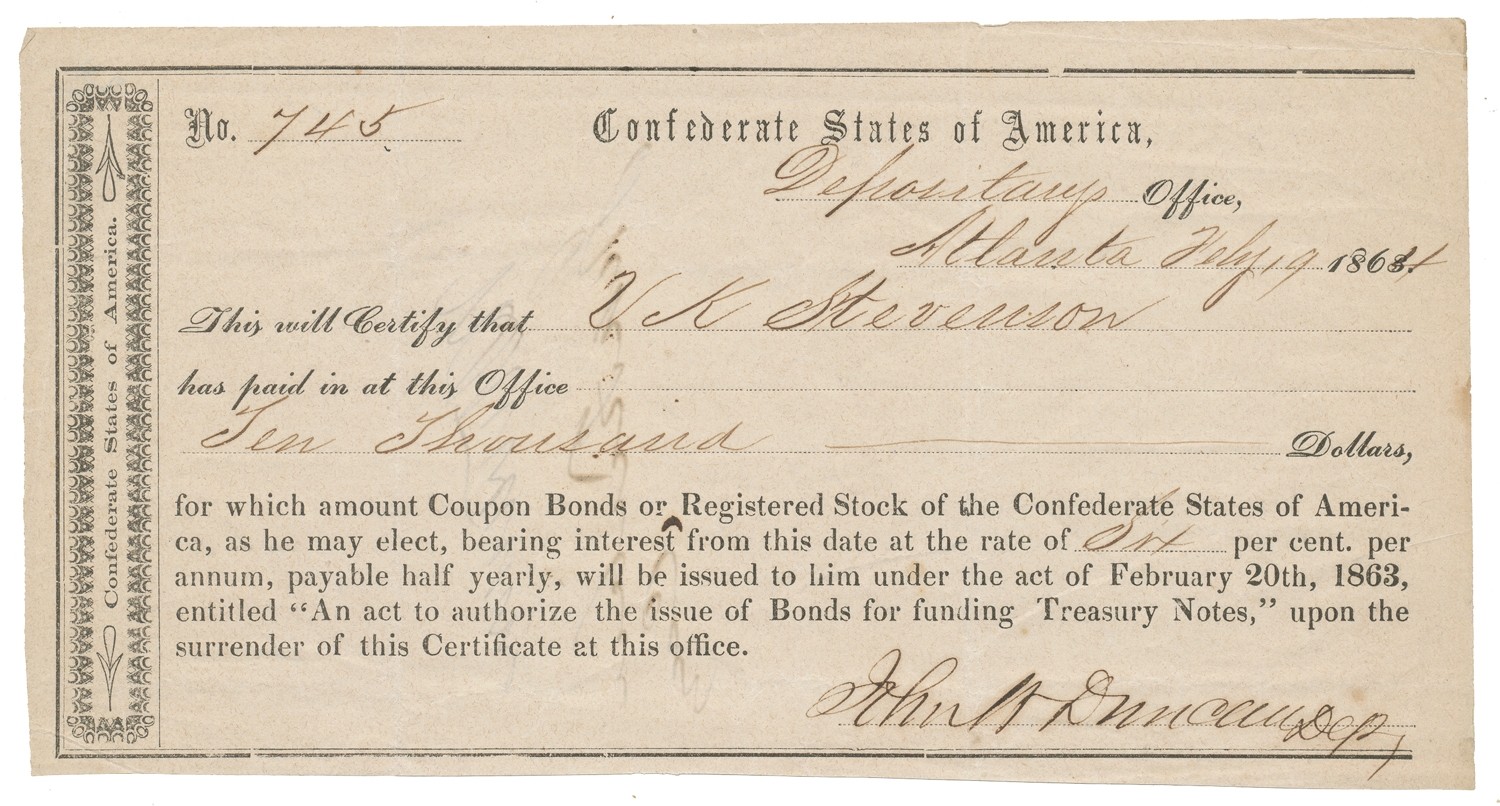 Confederate States of America.
No. 745 Confederate States of America,
Depositarys Office,
Atlanta Feby 19 1864
This will Certify that V K Stevenson
has paid in at this Office
Ten Thousand Dollars,
for which amount Coupon Bonds or Registered Stock of the Confederate States of Ameri-
ca, as he may elect, bearing interest from this date at the rate of Six per cent. per
annum, payable half yearly, will be issued to him under the act of February 20th, 1863,
entitled “An act to authorize the issue of Bonds for funding Treasury Notes,” upon the
surrender of this Certificate at this office.
John W Duncan Dep,